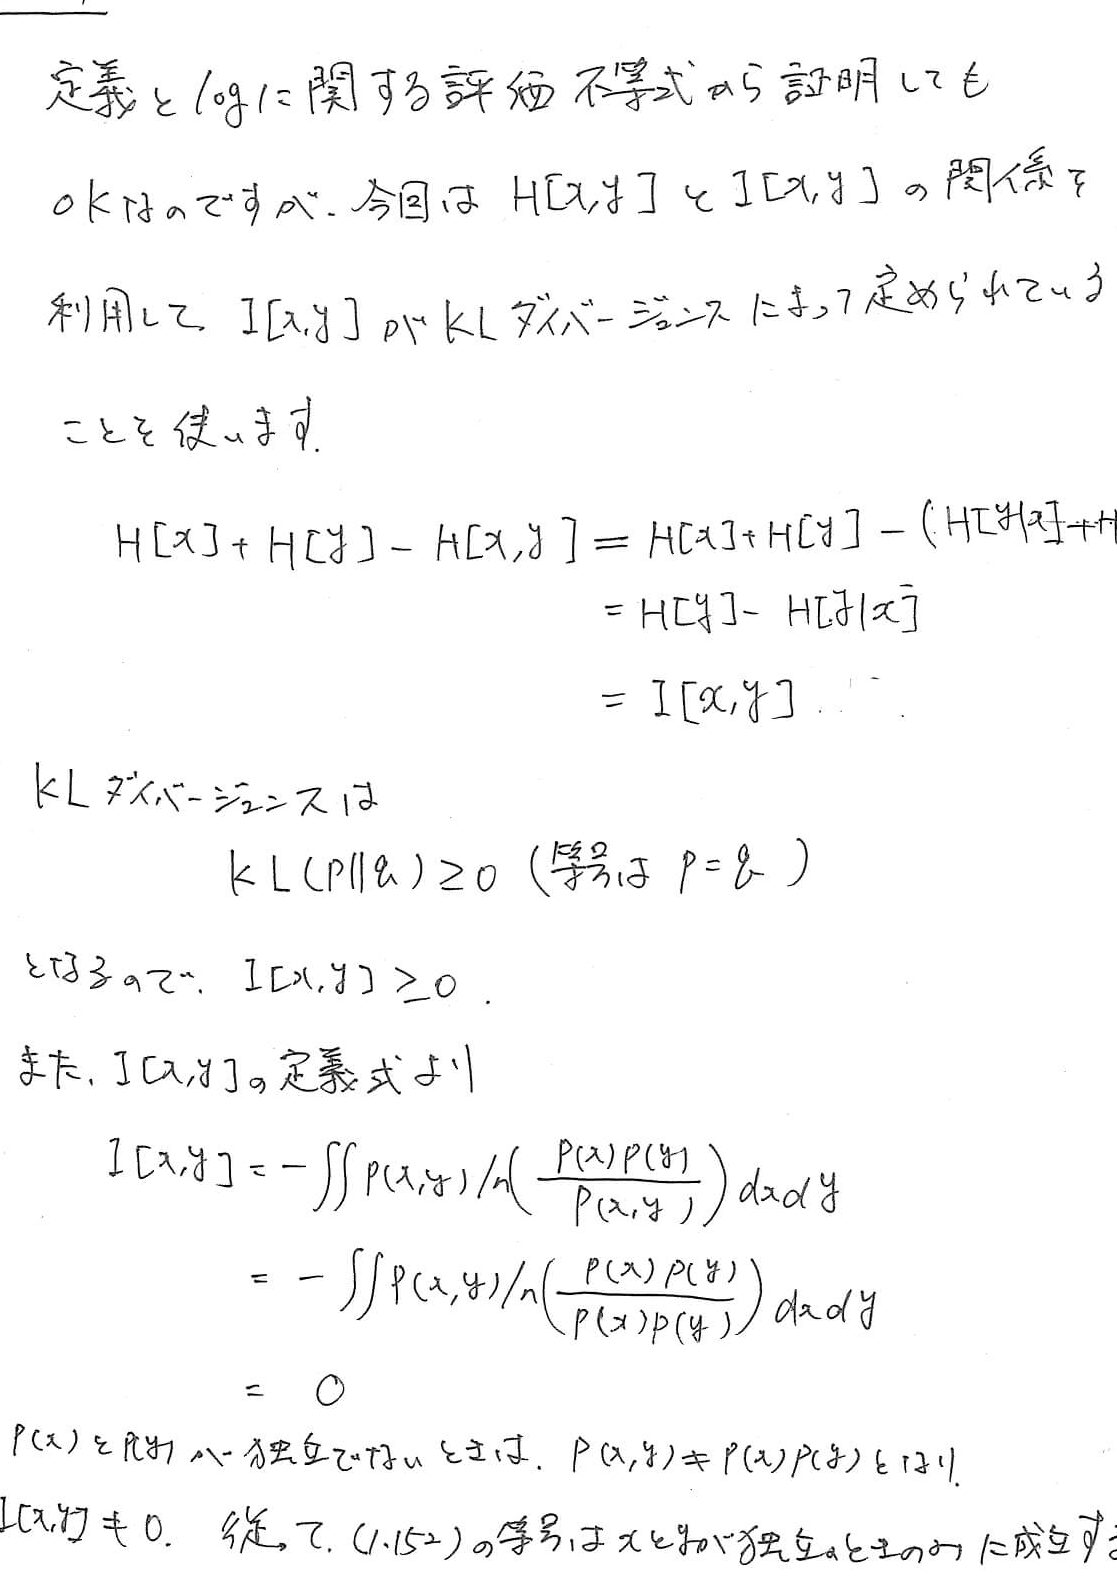 定義とlogに関する評価不等式から証明しても
OKなのですが、今回は H[x,y] と I[x,y] の関係を
利用して、I[x,y] が KLダイバージェンスによって定められている
ことを使います.
H[x] + H[y] - H[x,y] = H[x] + H[y] - (H[y|x] + H
= H[y] - H[y|x]
= I[x,y]
KLダイバージェンスは
KL(p||q) ≥ 0 (等号は p = q )
となるので、I[x,y] ≥ 0.
また、I[x,y]の定義式より
I[x,y] = - ∬ p(x,y) ln( p(x)p(y) / p(x,y) ) dxdy
= - ∬ p(x,y) ln( p(x)p(y) / p(x)p(y) ) dxdy
= 0
p(x)とp(y)が独立でないときは、p(x,y) ≠ p(x)p(y)となり、
I[x,y] ≠ 0. 従って、(1.152)の等号はxとyが独立のときのみに成立す